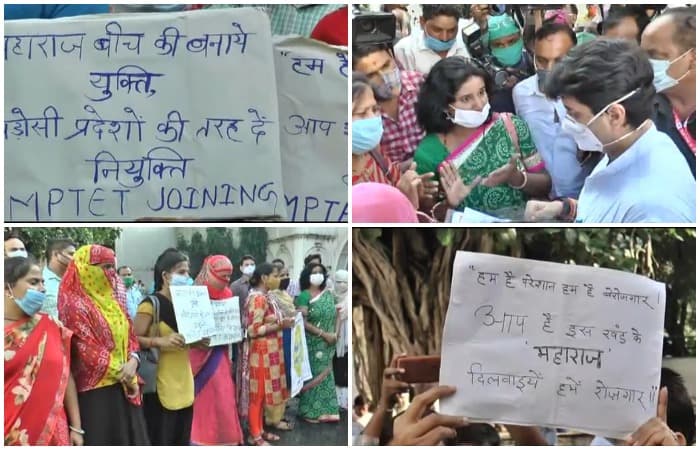 महाराज बीच की बनाये
युक्ति,
पड़ोसी प्रदेशों की तरह दें
नियुक्ति
MPTET JOINING
"हम है
आप
MPTE
"हम है परेशान हम है बेरोजगार।
आप है इस खंड के
'महाराज'
दिलवाइयें हमें रोज़गार॥"